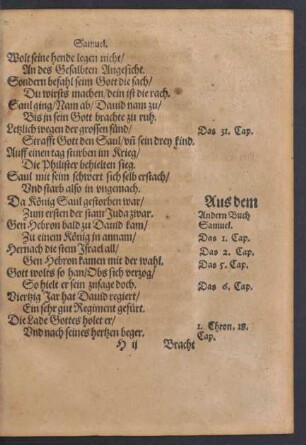 Samuel.
Wolt seine hende legen nicht/
An des Gesalbten Angesicht.
Sondern befahl seim Gott die sach/
Du wirsts machen/dein ist die rach.
Saul ging/Nam ab/Dauid nam zu/
Bis in sein Gott brachte zu ruh.
Letzlich wegen der grossen sünd/
Das 31. Cap.
Strafft Gott den Saul/vñ sein drey kind.
Auff einen tag sturben im Krieg/
Die Philister behielten sieg.
Saul mit seim schwert sich selb erstach/
Vnd starb also in vngemach.
Da König Saul gestorben war/
Aus dem
Zum ersten der stam Juda zwar.
Andern Buch
Gen Hebron bald zu Dauid kam/
Samuel.
Zu einen König in annam/
Das 1. Cap.
Hernach die stem Jsrael all/
Das 2. Cap.
Gen Hebron kamen mit der wahl.
Das 5. Cap.
Gott wolts so han/Obs sich verzog/
So hielt er sein zusage doch.
Das 6. Cap.
Viertzig Jar hat Dauid regiert/
Ein sehr gut Regiment gefürt.
Die Lade Gottes holet er/
1. Chron. 18.
Vnd nach seines hertzen beger.
Cap.
H ij
Bracht